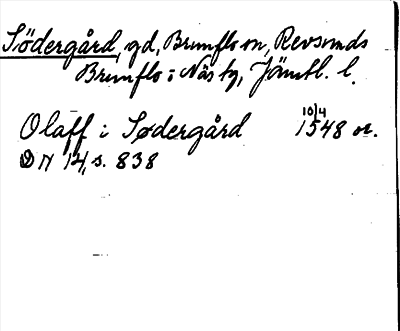 Södergård, gd, Brunflo sn, Revsunds
Brunflo i Näs tg, Jämtl. l.
Olaff i Sødergård 10/4 1548 or.
DN 14, s. 838